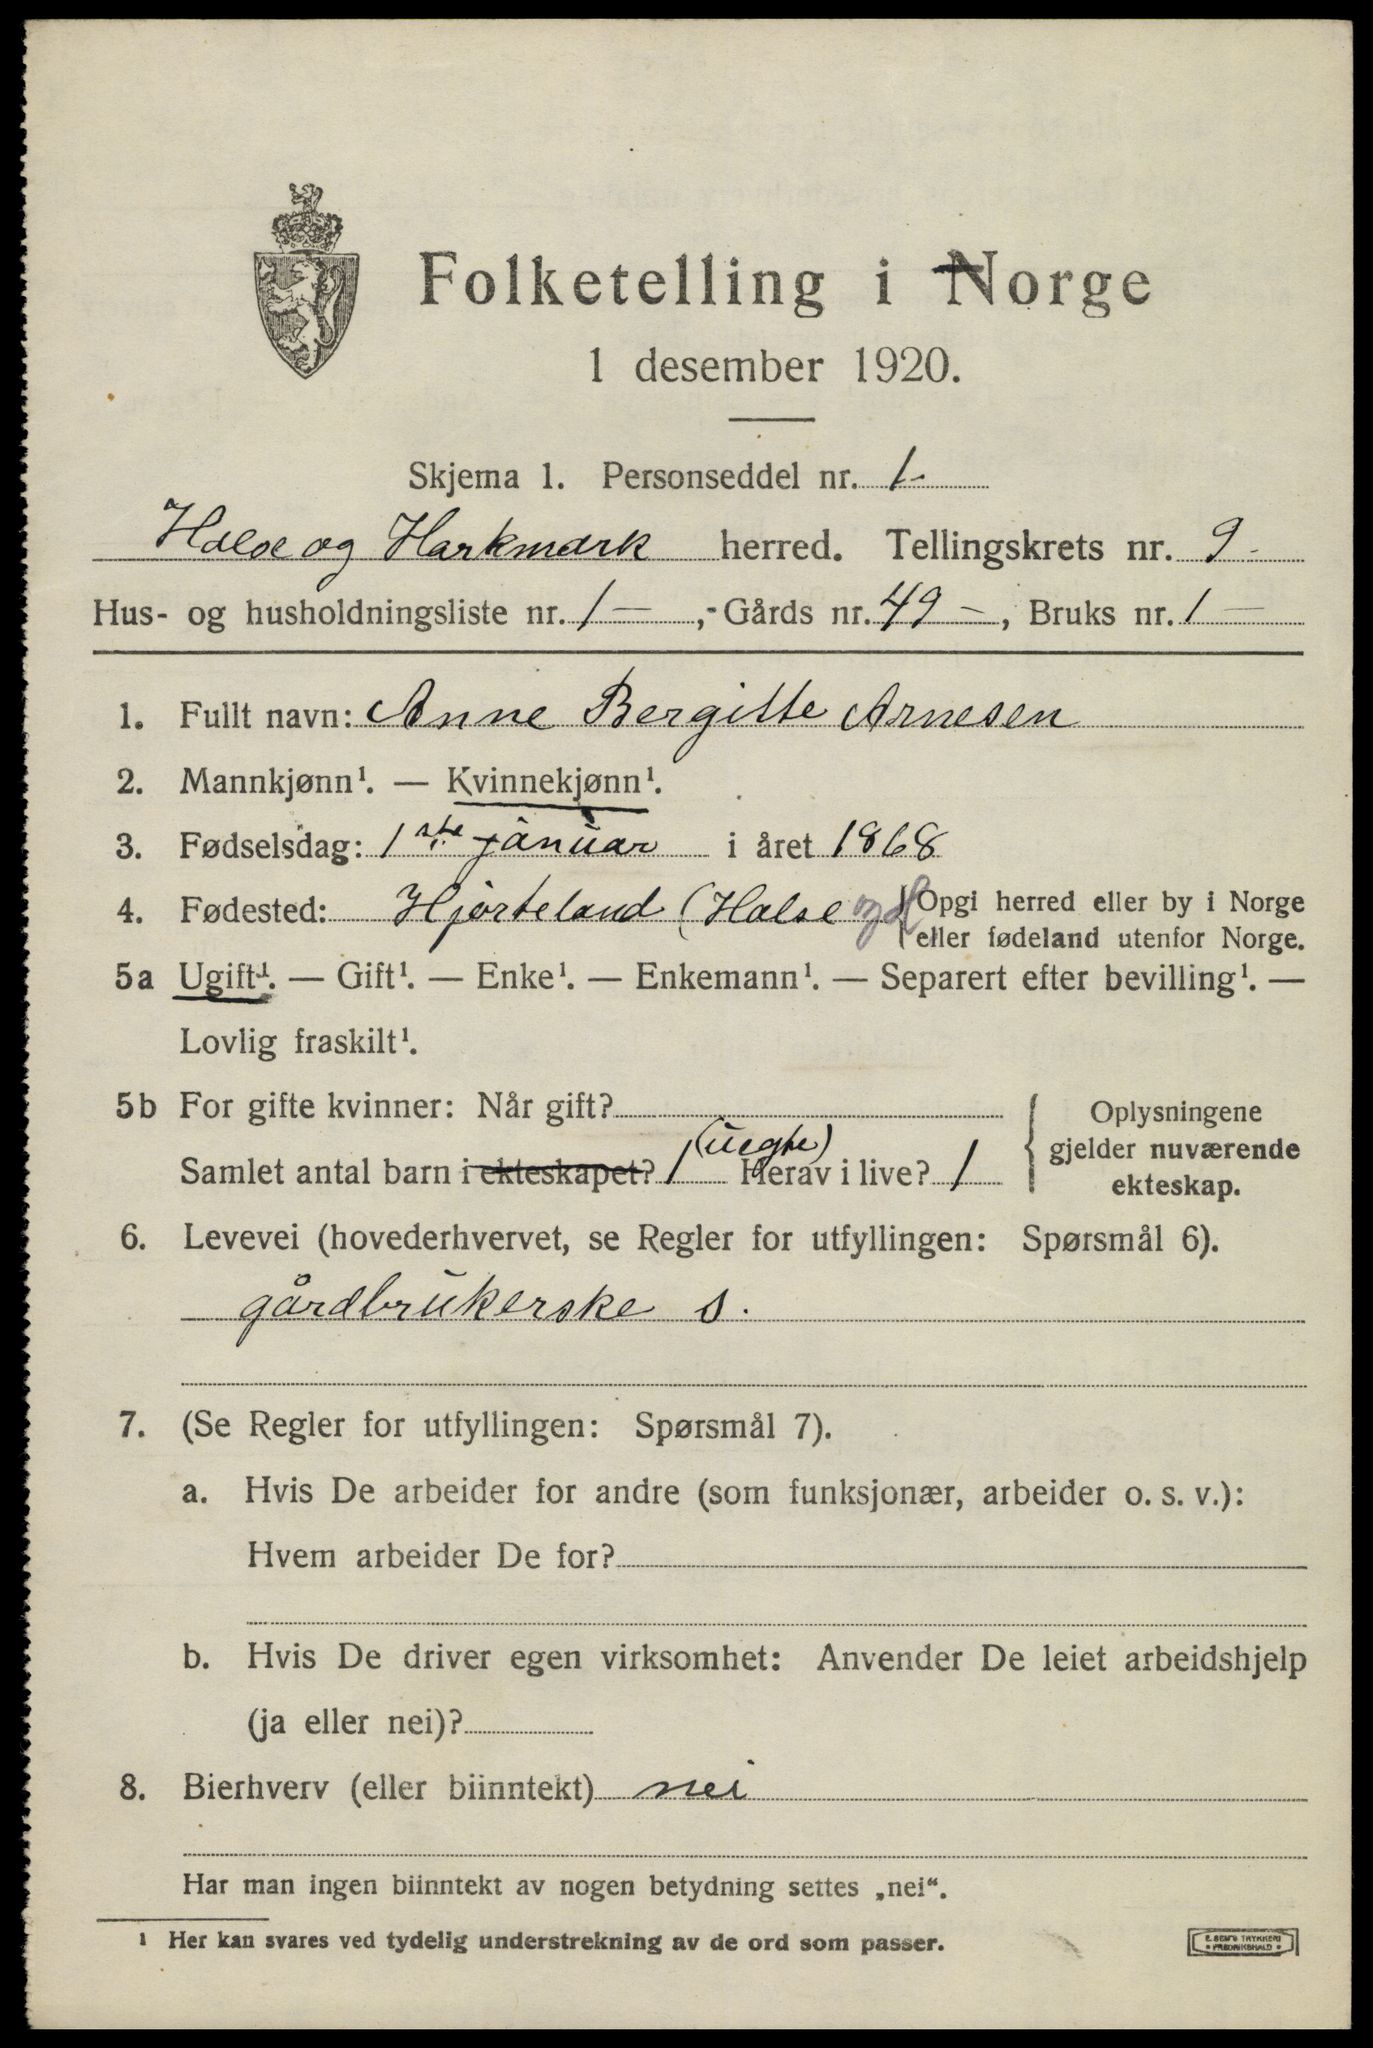 Folketelling i Norge
1 desember 1920.
Skjema 1. Personseddel nr. 1.
Halse og Harkmark herred. Tellingskrets nr. 9.
Hus- og husholdningsliste nr. 1 —, Gårds nr. 49 —, Bruks nr. 1 —
1. Fullt navn: Anne Bergitte Arnesen
2. Mannkjønn¹. — Kvinnekjønn¹.
3. Fødselsdag: 1ste januar i året 1868
4. Fødested: Hjorteland (Halse og H { Opgi herred eller by i Norge
eller fødeland utenfor Norge.
5a Ugift¹. — Gift¹. — Enke¹. — Enkemann¹. — Separert efter bevilling¹. —
Lovlig fraskilt¹.
5b For gifte kvinner: Når gift?
Samlet antal barn i ekteskapet? 1 (uegte) Herav i live? 1
Oplysningene
gjelder nuværende
ekteskap.
6. Levevei (hovederhvervet, se Regler for utfyllingen: Spørsmål 6).
gårdbrukerske s.
7. (Se Regler for utfyllingen: Spørsmål 7).
a. Hvis De arbeider for andre (som funksjonær, arbeider o. s. v.):
Hvem arbeider De for?
b. Hvis De driver egen virksomhet: Anvender De leiet arbeidshjelp
(ja eller nei)?
8. Bierhverv (eller biinntekt) nei
Har man ingen biinntekt av nogen betydning settes „nei“.
¹ Her kan svares ved tydelig understrekning av de ord som passer.
E. SEM'S TRYKKERI
• FREDRIKSHALD •